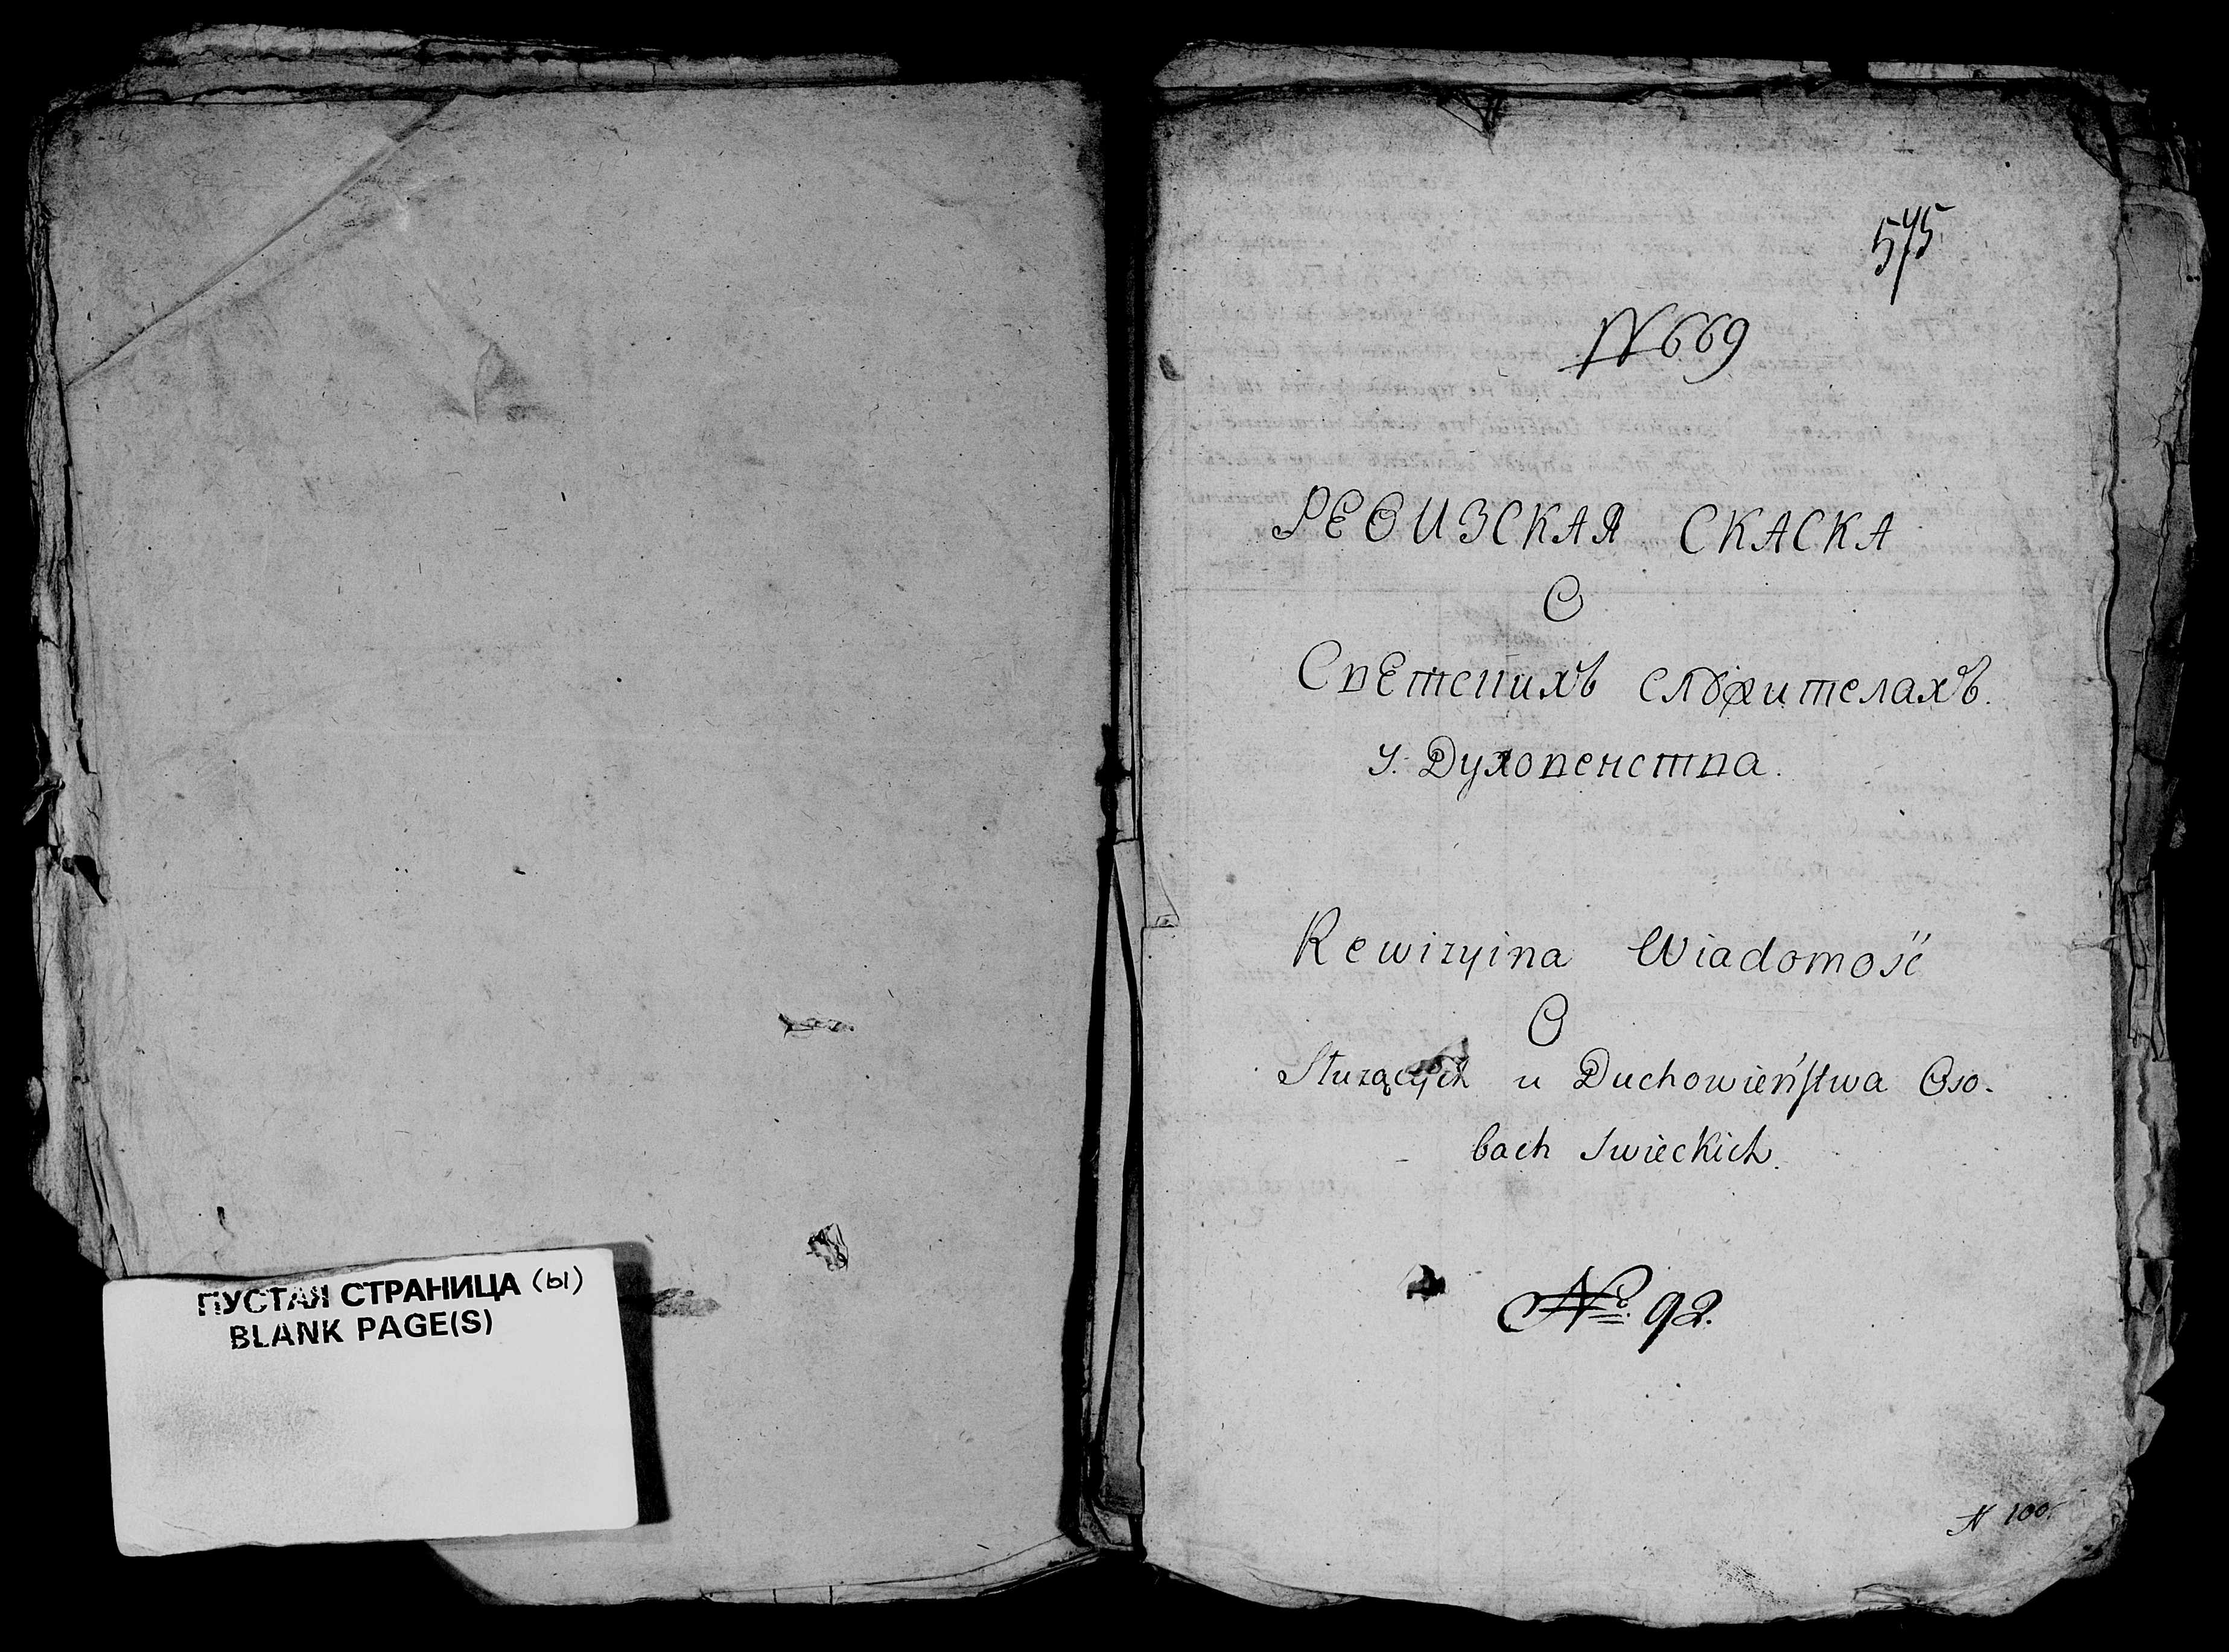 ПУСТАЯ СТРАНИЦА (Ы)
BLANK PAGE(S)
575
N 669
РЕВИЗСКАЯ СКАСКА
О
Светскихъ служителахъ
у Духовенства.
Rewizyina Wiadomość
O
Służących u Duchowieństwa Oso-
bach Swieckich.
No. 92.
N 100.